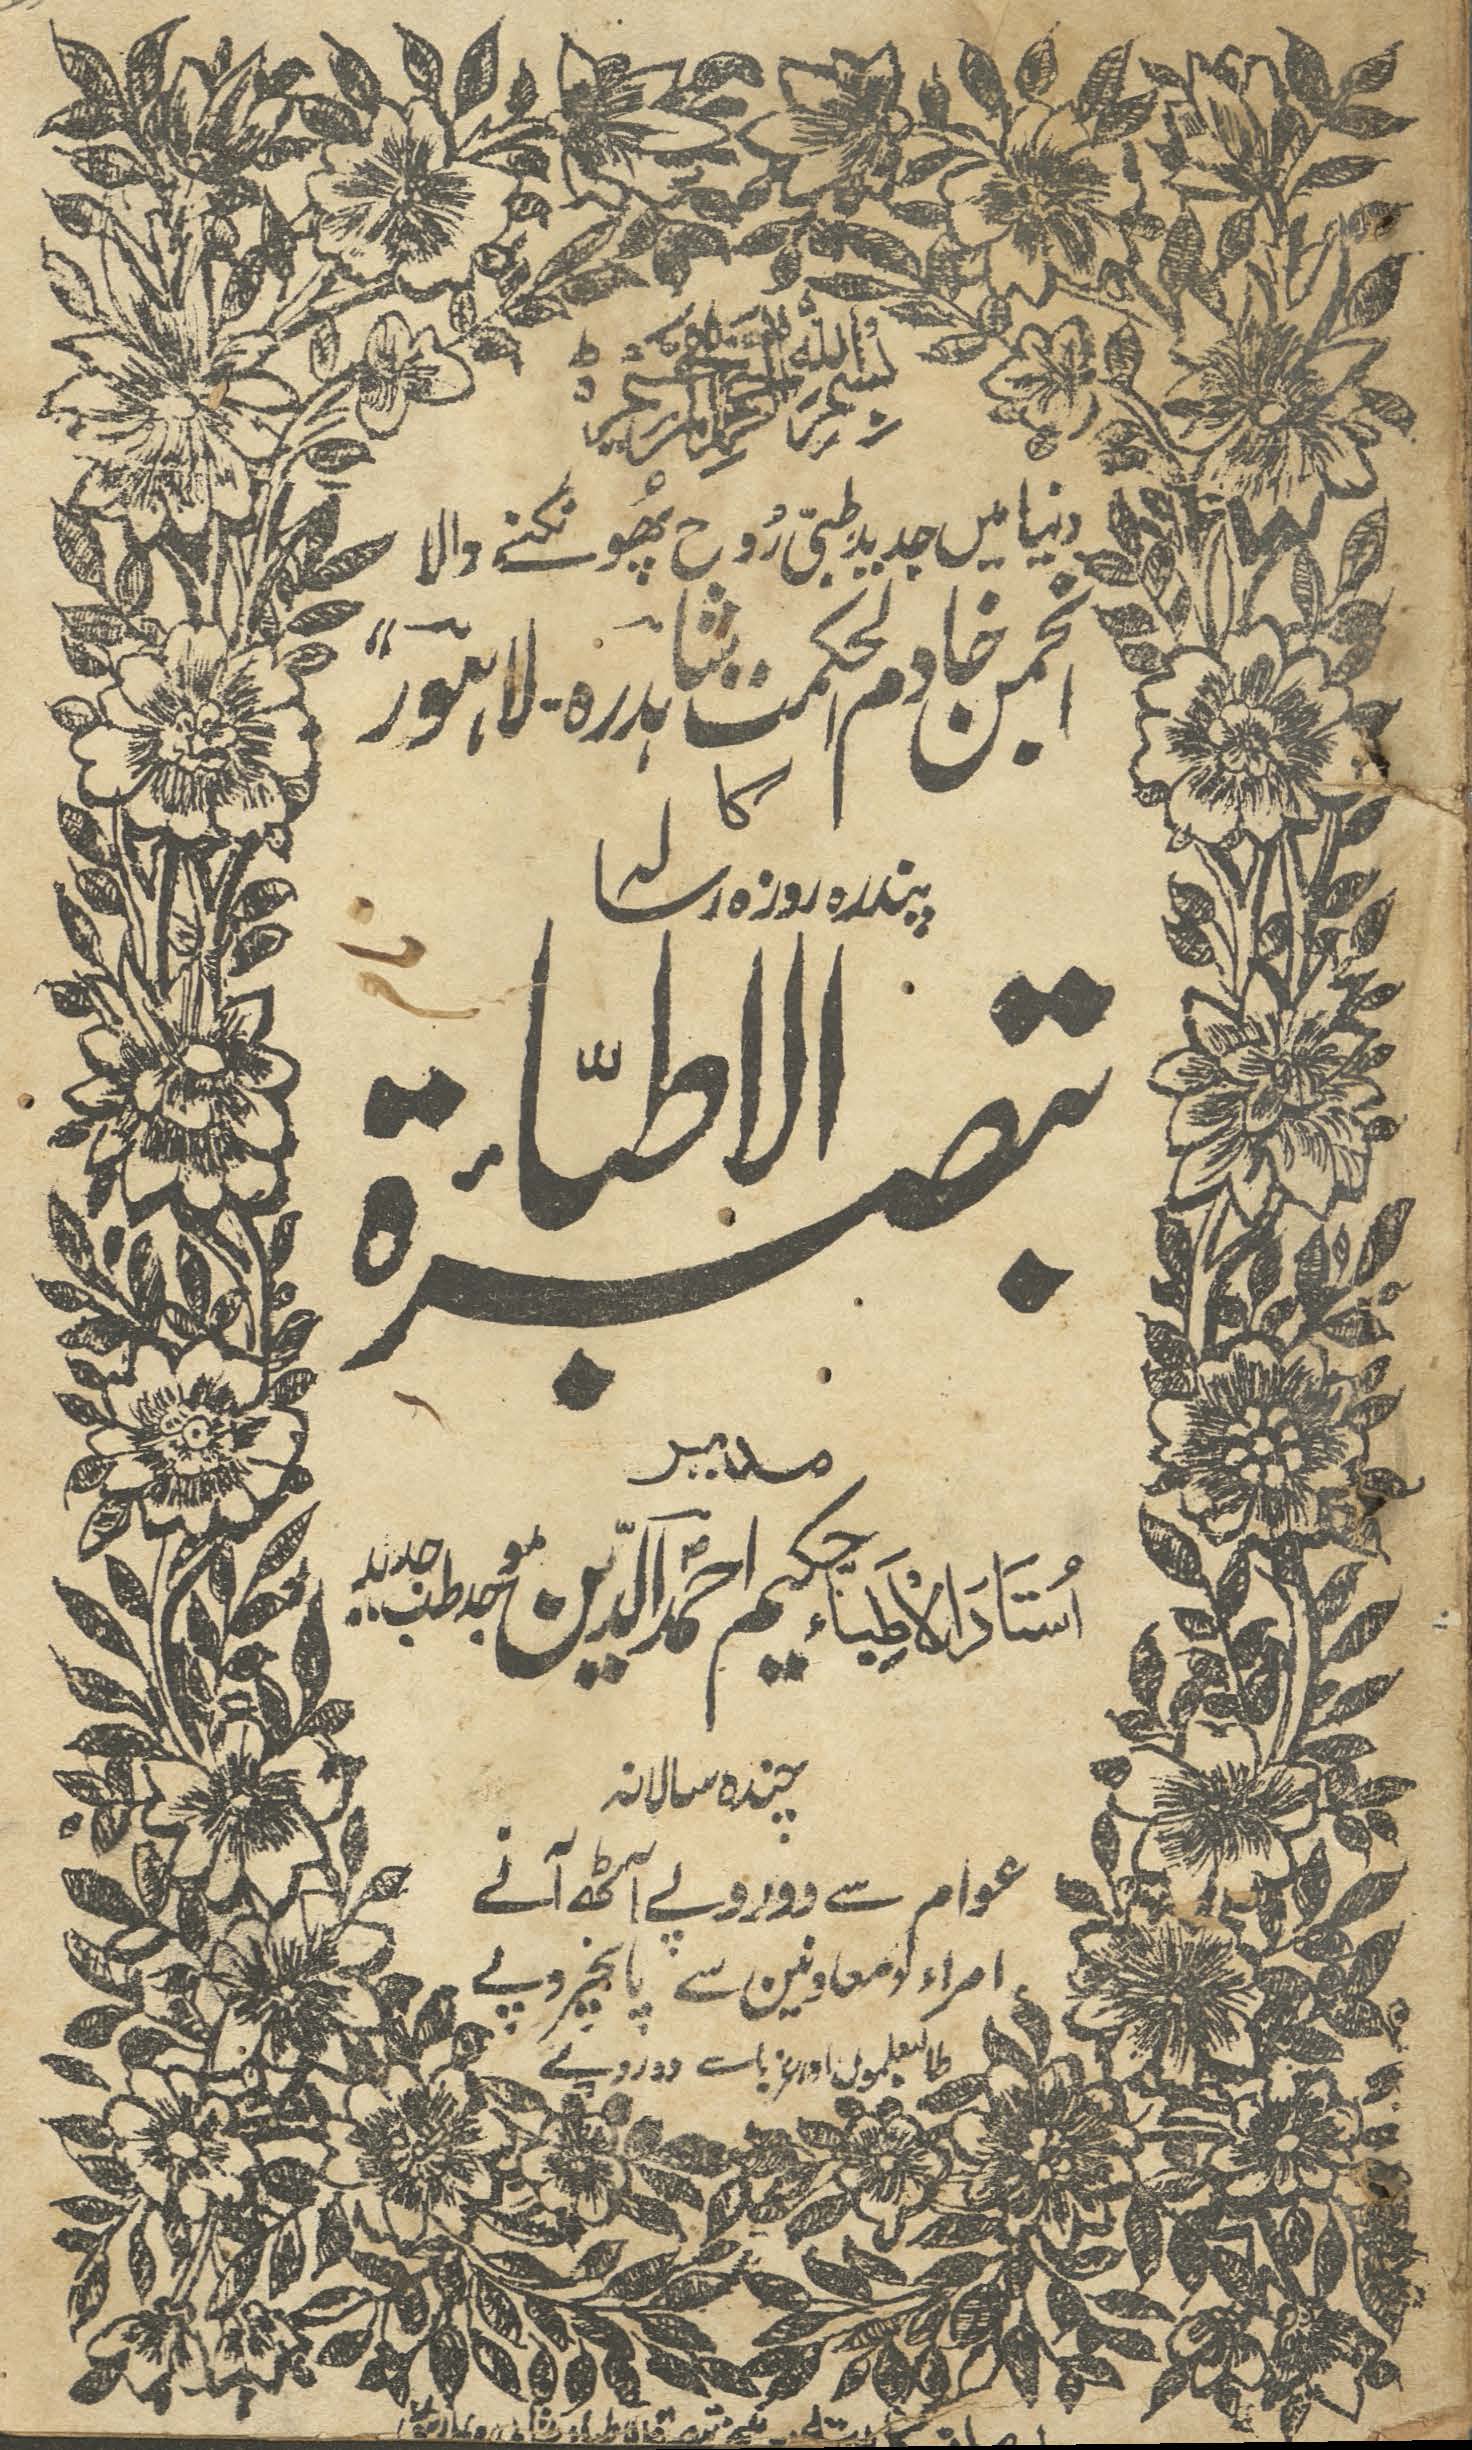 بسم اللہ الرحمن الرحیم
دنیا میں جدید طبّی رُوح پھُونکنے والا
انجمن خادم الحکمت شاہدرہ - لاہور"
کا
پندرہ روزہ رسالہ
تبصرۃ الاطبّاء
مدیر
اُستاذ الاطباء حکیم احمد الدّین موجد طب جدید
چندہ سالانہ
عوام سے دو روپے آٹھ آنے
امراء و معاونین سے پانچروپے
طالبعلموں اور غرباسے دو روپے